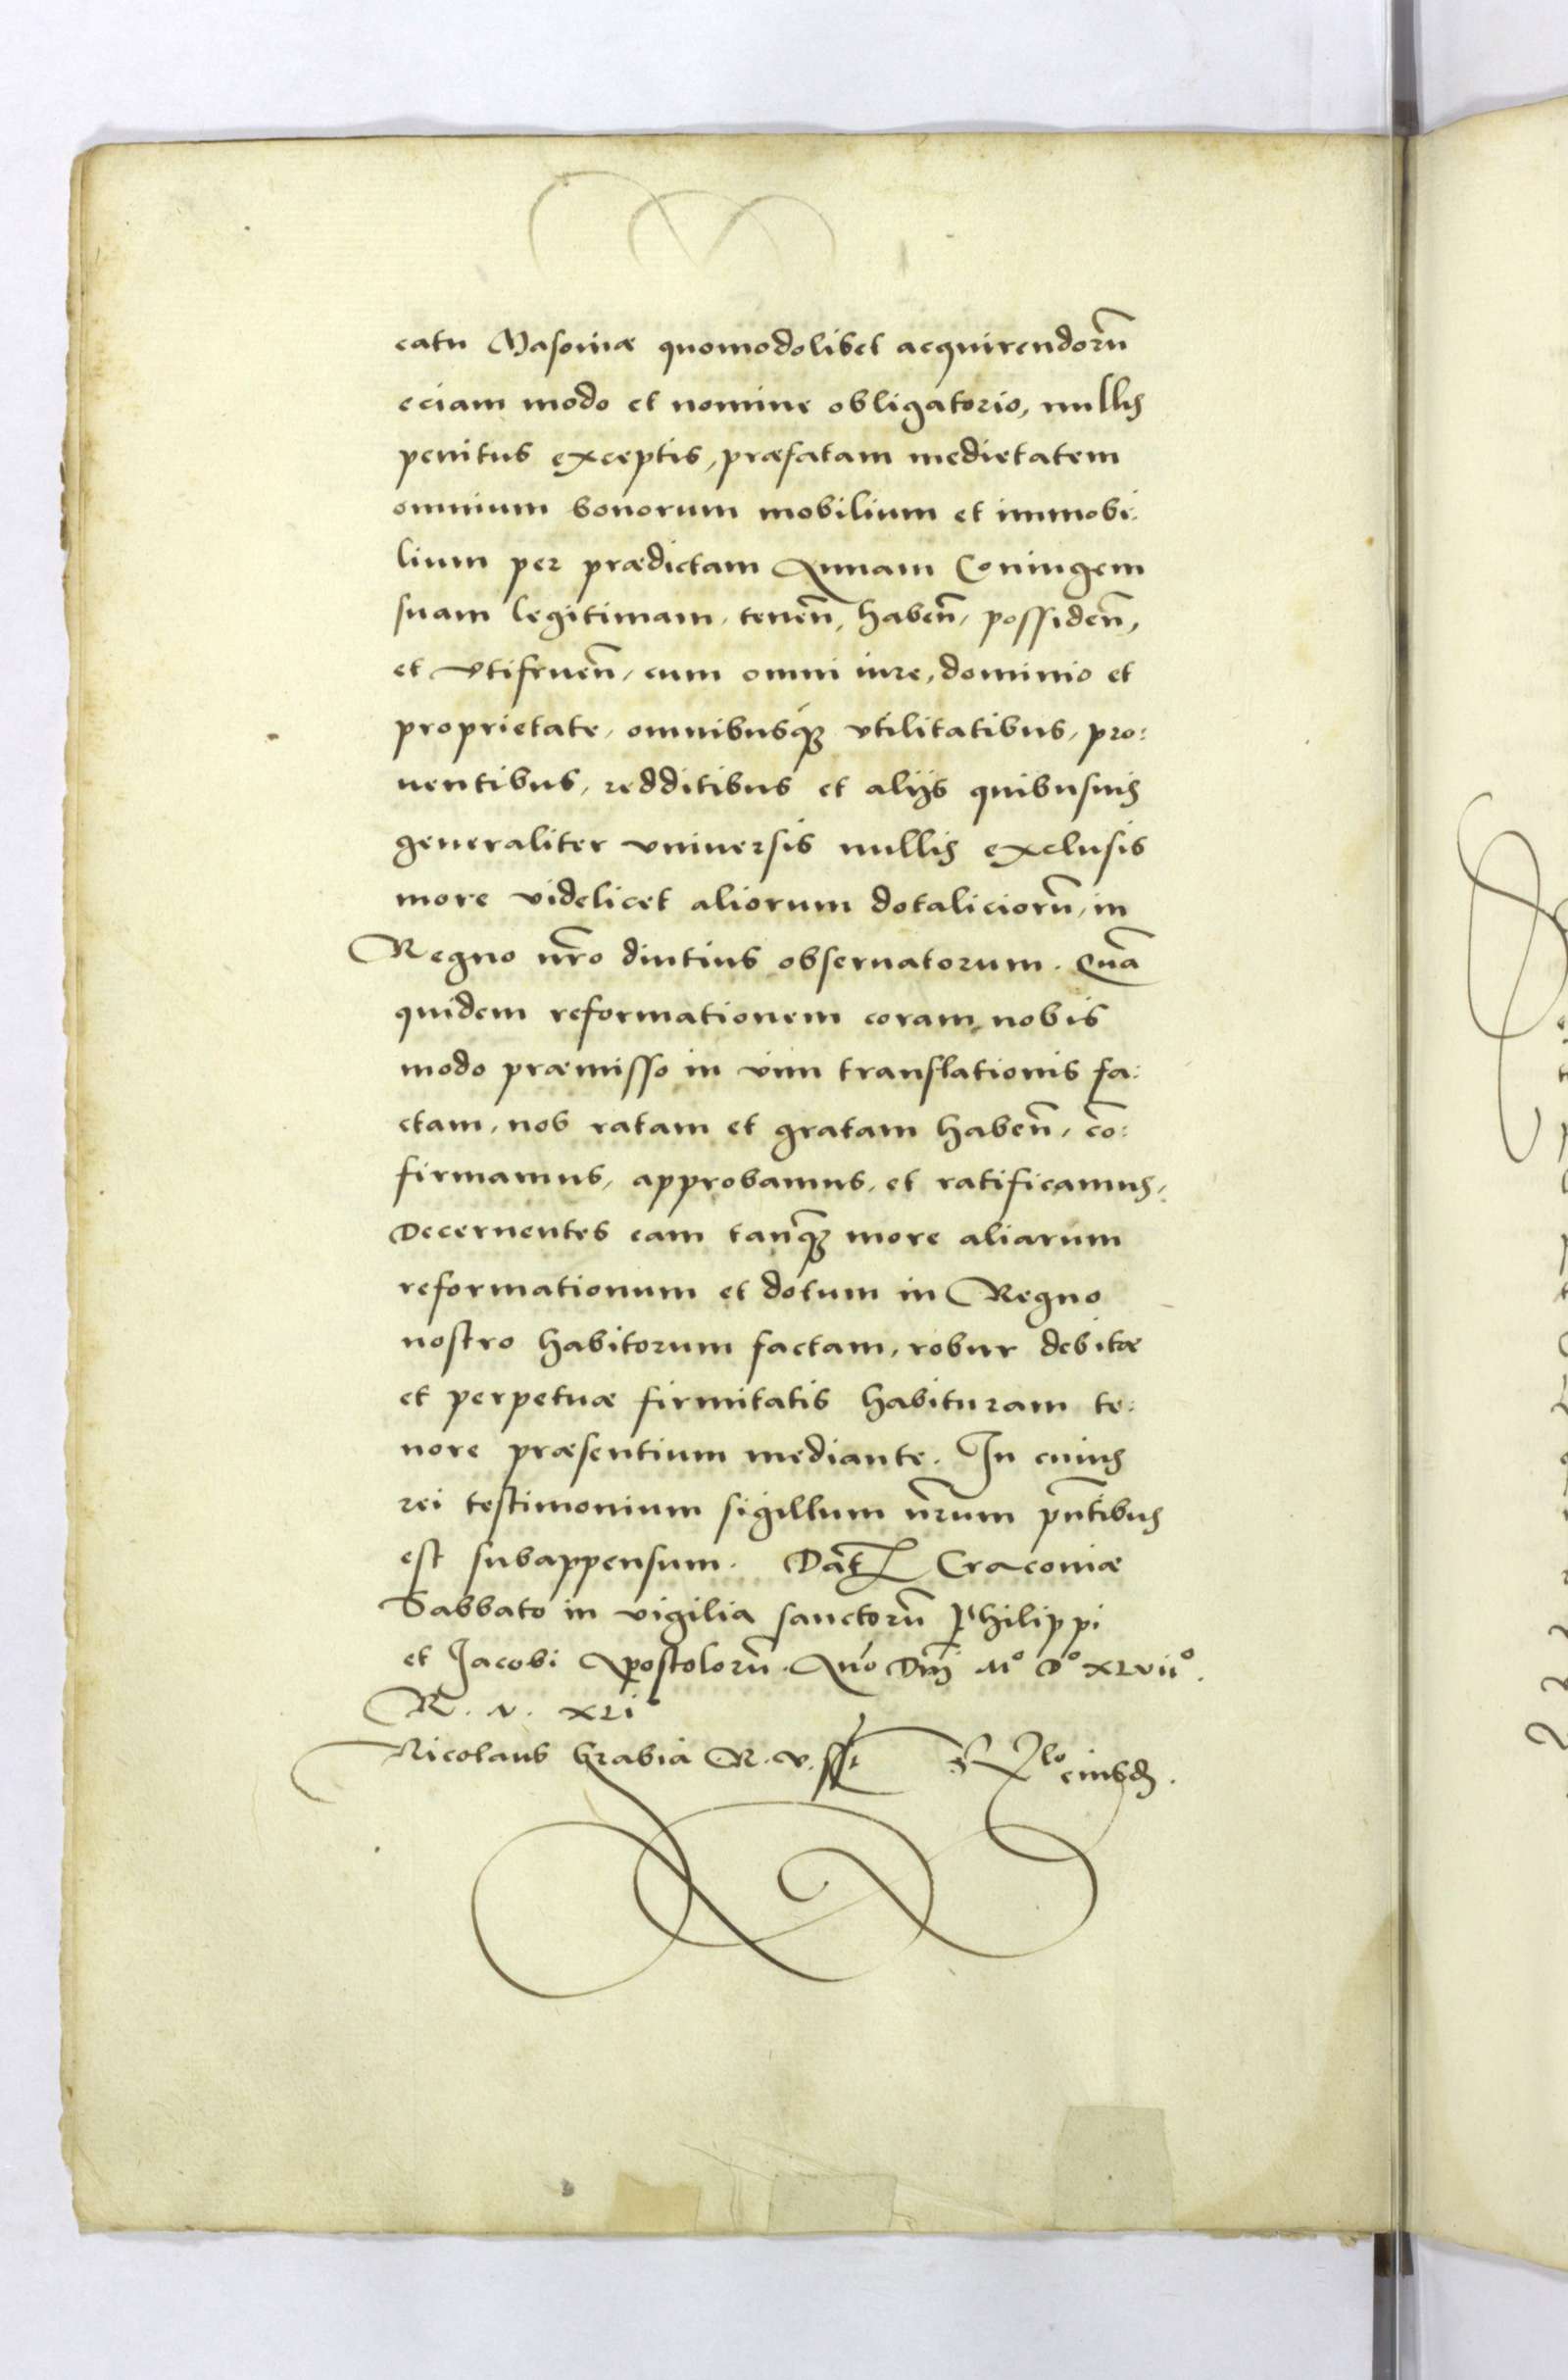 catu Masouiæ quomodolibet acquirendorū
eciam modo et nomine obligatorio, nullis
penitus exceptis, præfatam medietatem
omnium bonorum mobilium et immobi:
lium per prædictam Annam Coniugem
suam legitimam, tenen̄, haben̄, possiden̄,
et vtifruen̄, cum omni iure, dominio et
proprietate, omnibusq3 vtilitatibus, pro:
uentibus, redditibus et alijs quibusuis
generaliter vniuersis nullis exclusis
more videlicet aliorum dotaliciorū, in
Regno nr̄o diutius obseruatorum. Quā
quidem reformationem coram nobis
modo præmisso in vim translationis fa:
ctam, nos ratam et gratam haben̄, cō:
firmamus, approbamus, et ratificamus,
Decernentes eam tanq̄3 more aliarum
reformationum et dotum in Regno
nostro habitorum factam, robur debitæ
et perpetuæ firmitatis habituram te:
nore præsentium mediante. In cuius
rei testimonium sigillum nr̄um pn̄tibus
est subappensum. Dat̄ Cracouiæ
Sabbato in vigilia sanctorū Philippi
et Jacobi Apostolorū. Anō Dn̄i Mº Dº XLviiº.
R. N. XLi
Nicolaus Grabia R. v. sst eiusd̄.